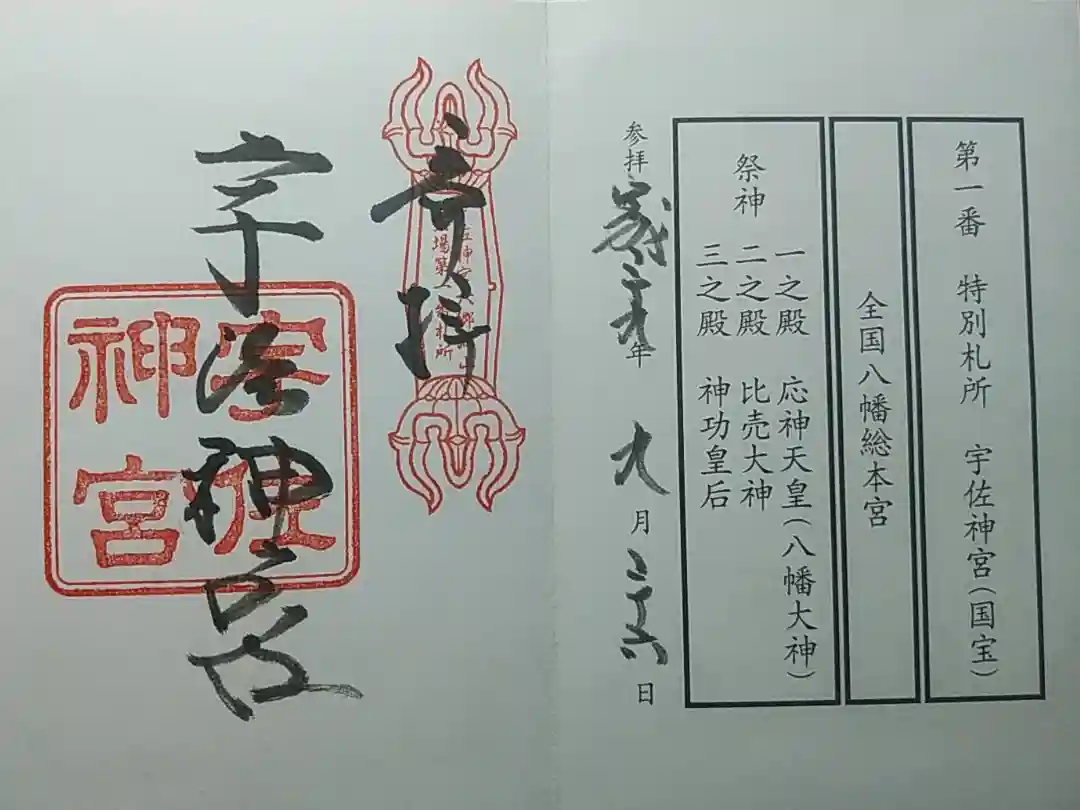 第一番 特別札所 宇佐神宮(国宝)
全国八幡総本宮
祭神
一之殿 応神天皇(八幡大神)
二之殿 比売大神
三之殿 神功皇后
参拝 平成二十九年 九月二十六日
奉拝
宇佐神宮
宇佐
神宮